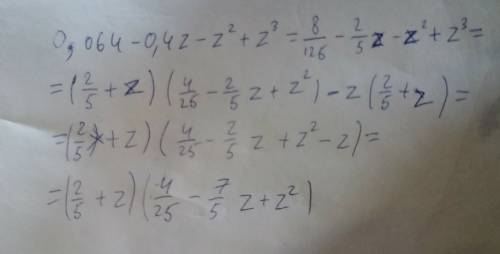 0,064 - 0,4z - z² + z³ = 8/126 - 2/5 z - z² + z³ =
= (2/5 + z) (4/26 - 2/5 z + z²) - z (2/5 + z) =
= (2/5 + z) (4/25 - 2/5 z + z² - z) =
= (2/5 + z) (4/25 - 7/5 z + z²)